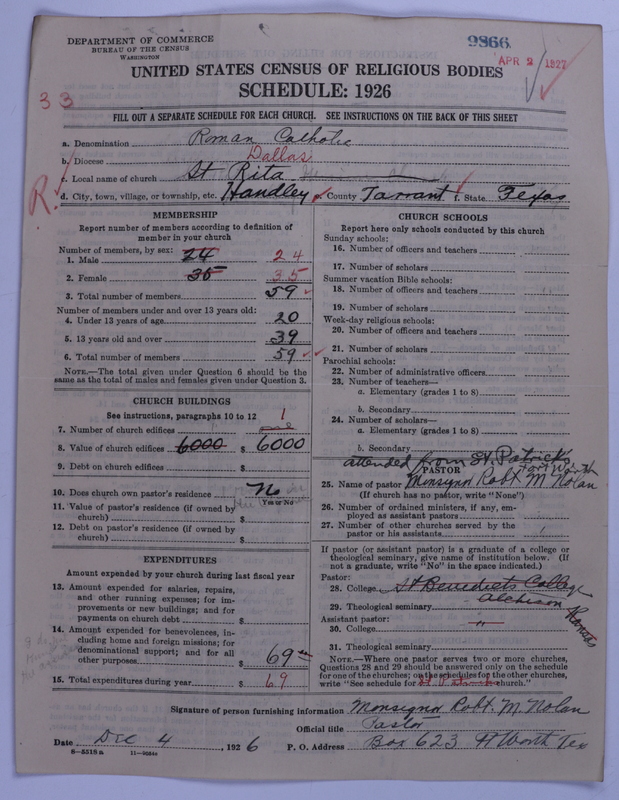 DEPARTMENT OF COMMERCE
BUREAU OF THE CENSUS
WASHINGTON
9866
APR 2 1927
UNITED STATES CENSUS OF RELIGIOUS BODIES
SCHEDULE: 1926
33
FILL OUT A SEPARATE SCHEDULE FOR EACH CHURCH. SEE INSTRUCTIONS ON THE BACK OF THIS SHEET
a. Denomination Roman Catholic
b. Diocese Dallas
c. Local name of church St Rita
R.
d. City, town, village, or township, etc. Handley e. County Tarrant f. State Texas
MEMBERSHIP
Report number of members according to definition of
member in your church
Number of members, by sex:
1. Male 24 24
2. Female 35 35
3. Total number of members 59
Number of members under and over 13 years old:
4. Under 13 years of age 20
5. 13 years old and over 39
6. Total number of members 59
NOTE.—The total given under Question 6 should be
same as the total of males and females given under Question 3.
CHURCH BUILDINGS
See instructions, paragraphs 10 to 12
7. Number of church edifices 1
8. Value of church edifices 6000 $ 6000
9. Debt on church edifices $
10. Does church own pastor's residence No
Yes or No
11. Value of pastor's residence (if owned by
church) $
12. Debt on pastor's residence (if owned by
church) $
EXPENDITURES
Amount expended by your church during last fiscal year
13. Amount expended for salaries, repairs,
and other running expenses; for im-
provements or new buildings; and for
payments on church debt $
14. Amount expended for benevolences, in-
cluding home and foreign missions; for
denominational support; and for all
other purposes $ 69
15. Total expenditures during year $ 69
CHURCH SCHOOLS
Report here only schools conducted by this church
Sunday schools:
16. Number of officers and teachers
17. Number of scholars
Summer vacation Bible schools:
18. Number of officers and teachers
19. Number of scholars
Week-day religious schools:
20. Number of officers and teachers
21. Number of scholars
Parochial schools:
22. Number of administrative officers
23. Number of teachers—
a. Elementary (grades 1 to 8)
b. Secondary
24. Number of scholars—
a. Elementary (grades 1 to 8)
b. Secondary
attended from St. Patricks
Fort Worth
PASTOR
25. Name of pastor Monsignor Robt M. Nolan
(If church has no pastor, write "None")
26. Number of ordained ministers, if any, em-
ployed as assistant pastors
27. Number of other churches served by the
pastor or his assistants
If pastor (or assistant pastor) is a graduate of a college or
theological seminary, give name of institution below. (If
not a graduate, write "No" in the space indicated.)
Pastor:
28. College St Benedicts College
Atchison Kansas
29. Theological seminary
Assistant pastor:
30. College "
31. Theological seminary
NOTE.—Where one pastor serves two or more churches,
Questions 28 and 29 should be answered only on the schedule
for one of the churches; on the schedules for the other churches,
write "See schedule for St. Patrick church."
Signature of person furnishing information Monsignor Robt. M. Nolan
Official title Pastor
Date Dec 4, 1926 P. O. Address Box 623 Ft Worth Tex
8—5518 a